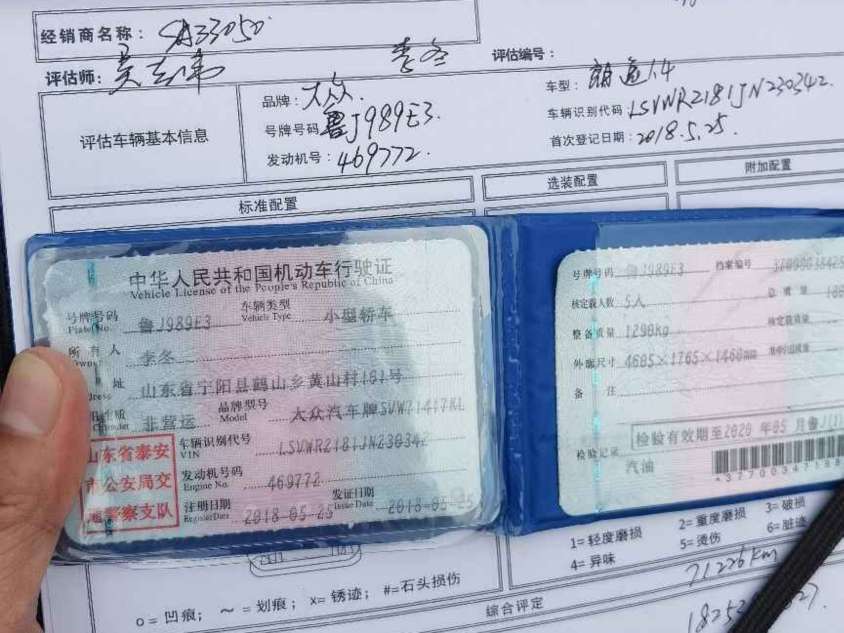 经销商名称: SA33050
评估师: 李冬 评估编号:
评估车辆基本信息
品牌: 大众. 车型: 朗逸1.4
号牌号码 鲁J989E3. 车辆识别代码: LSVWR2181JN230342.
发动机号: 469772. 首次登记日期: 2018.5.25.
标准配置 选装配置 附加配置
中华人民共和国机动车行驶证
Vehicle License of the People's Republic of China
号牌号码 鲁J989E3 车辆类型 小型轿车
Plate No. Vehicle Type
所有人 李冬
Owner
址 山东省宁阳县鹤山乡黄山村181号
非营运 品牌型号 大众汽车牌SVW71417KL
Model
车辆识别代号 LSVWR2181JN230342
VIN
山东省泰安
市公安局交
通警察支队
发动机号码 469772
Engine No.
注册日期 2018-05-25 发证日期 2018-05-25
Register Date Issue Date
号牌号码 鲁J989E3 档案编号
核定载人数 5人 总质量
整备质量 1290kg 核定载质量
外廓尺寸 4605×1765×1460mm
备注
检验记录 检验有效期至2020年05月鲁J
汽油
1=轻度磨损 2=重度磨损 3=破损
4=异味 5=烫伤 6=脏迹
71226km
o=凹痕; ～=划痕; x=锈迹; #=石头损伤
综合评定